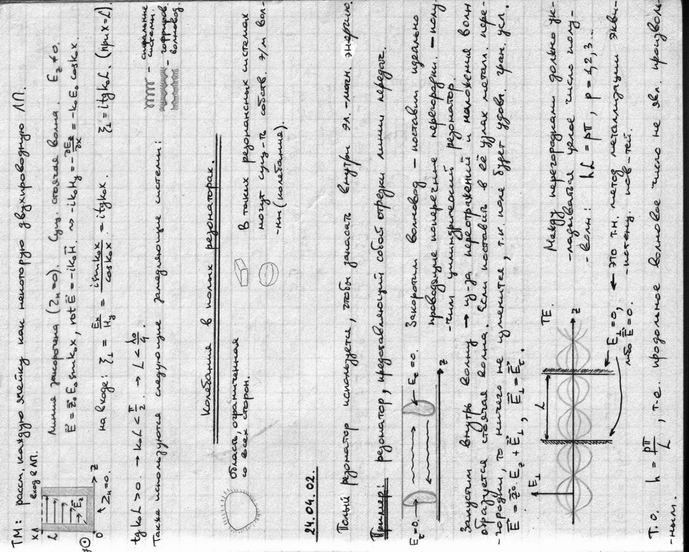 TM: рассм. каждую ячейку как некоторую двухпроводную ЛП.
вход в ЛП.
Линия закорочена (Zн=0). Сущ. стоячая волна. Ez≠0.
E = z⁰E₀ sin k₀x, rot E = -ik₀H → -ik₀Hy = -∂Ez/∂x = -k₀E₀ cos k₀x
Zн=0.
на входе: ξ⊥ = Ez/Hy = i sin k₀x / cos k₀x = i tg k₀x. ξ⊥ = i tg k₀L. (при x=L)
tg k₀L > 0. → k₀L < π/2 → L < λ₀/4.
Также используются следующие замедляющие системы:
спиральные системы;
гофриров. волновод
Колебания в полых резонаторах.
Область, ограниченная со всех сторон.
В таких резонансных системах
могут сущ-ть собств. э/м вол-
-ны (колебания).
24.04.02
Полый резонатор используется, чтобы запасать внутри эл.-магн. энергию.
Пример: резонатор, представляющий собой отрезки линии передач.
Eτ=0.
Eτ=0.
Закоротим волновод – поставим идеально
проводящие поперечные перегородки. – полу-
-чим цилиндрический резонатор.
Запустим внутрь волну → из-за переотражений и наложения волн
образуется стоячая волна. Если поставить в её узлах металл. пере-
-городки, то ничего не изменится, т.к. поле будет удовл. гран. усл.
E = z⁰Ez + E⊥, E⊥ = Eτ.
TE.
E⊥
L
z
E⊥=0,
Между перегородками должно ук-
-ладываться целое число полу-
-волн: hL = pπ, p = 1,2,3...
← это т.н. метод металлизации экви-
-потенц. пов-тей.
Т.о. h = pπ/L, т.е. продольное волновое число не явл. произволь-
-ным.